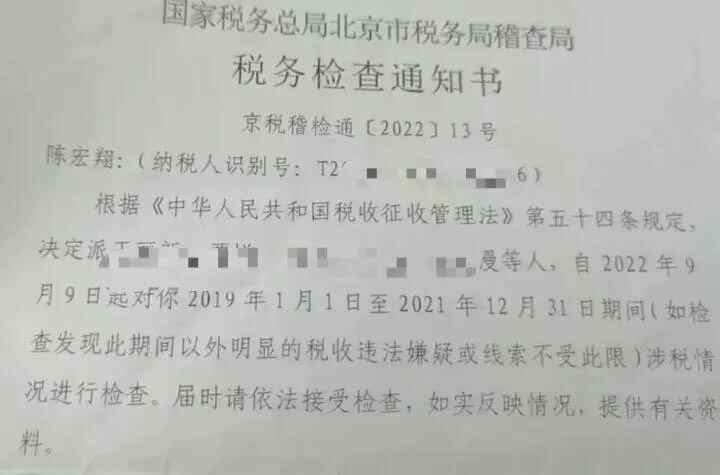 国家税务总局北京市税务局稽查局
税务检查通知书
京税稽检通〔2022〕13号
陈宏翔:(纳税人识别号:T2 6)
根据《中华人民共和国税收征收管理法》第五十四条规定,
决定派 等人,自2022年9
月9日起对你2019年1月1日至2021年12月31日期间(如检
查发现此期间以外明显的税收违法嫌疑或线索不受此限)涉税情
况进行检查。届时请依法接受检查,如实反映情况,提供有关资
料。